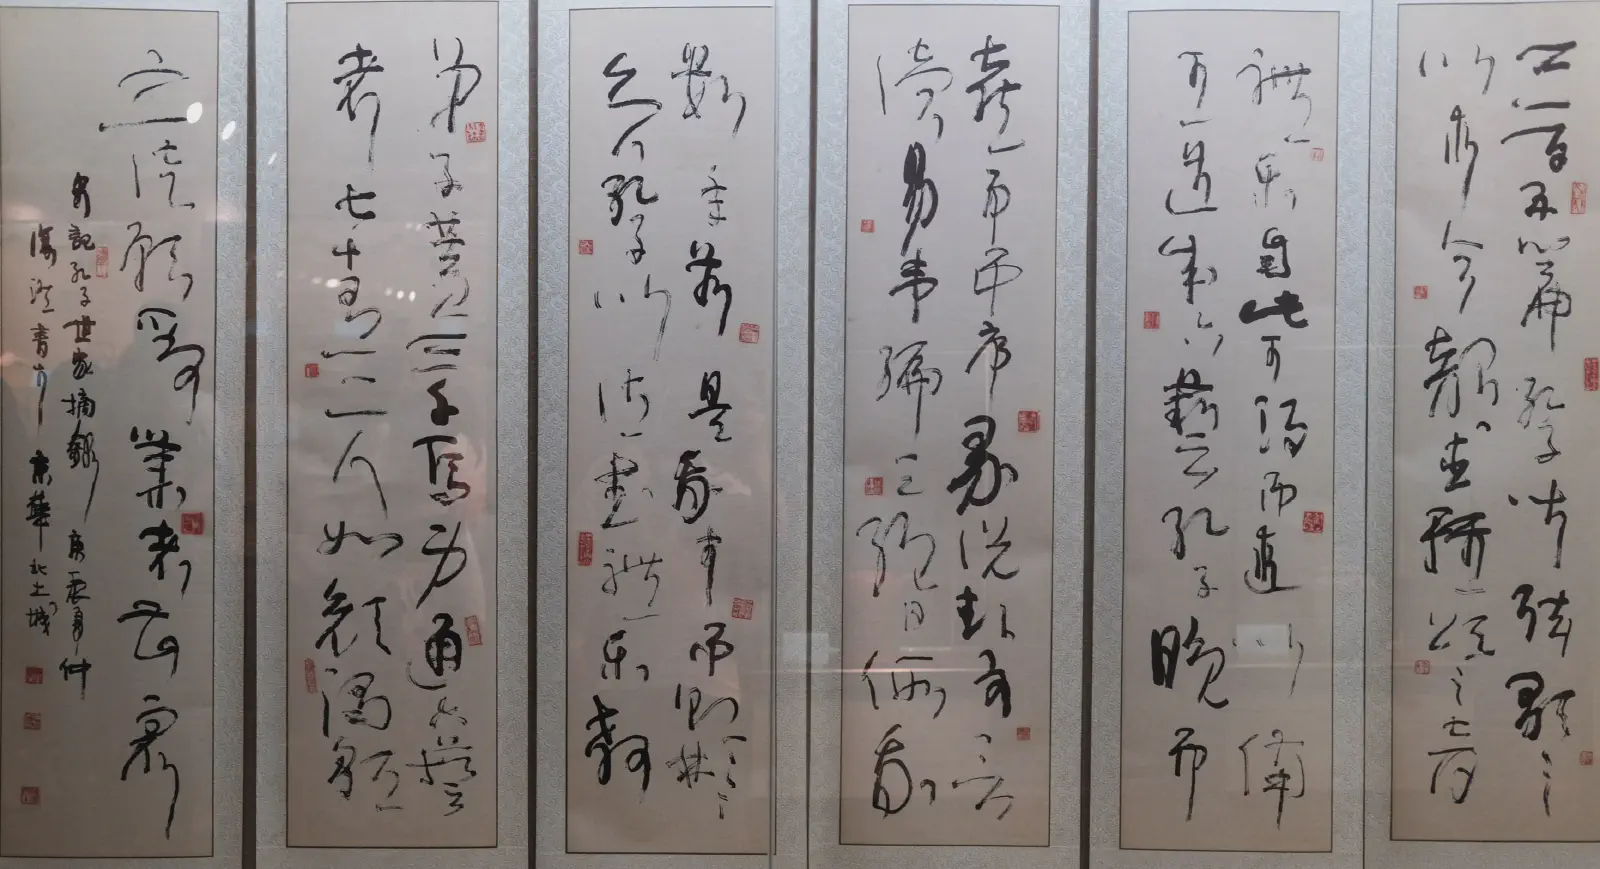 三百五篇孔子皆弦歌之
以求合韶武雅頌之音
禮樂自此可得而述以備
王道成六藝孔子晚而
喜易序彖說卦文言
讀易韋編三絕曰假我
數年若是我於易則彬彬
矣孔子以詩書禮樂教
弟子蓋三千焉身通六藝
者七十有二人如顏濁鄒
之徒頗受業者甚眾
史記孔子世家摘錄 庚辰年仲
書於京華北土城